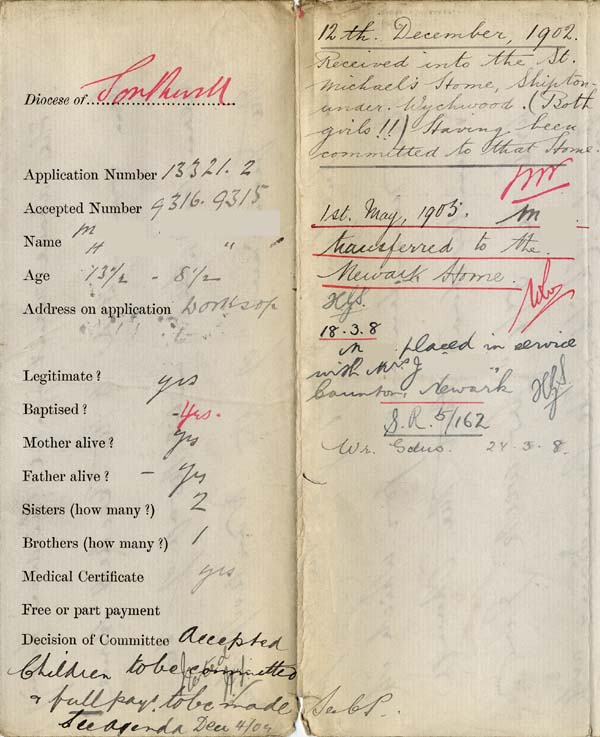 Diocese of Southwell
Application Number 13321. 2
Accepted Number 9316. 9315
Name M
H "
Age 13½ - 8½
Address on application Worksop
Legitimate? yes
Baptised? -Yes.
Mother alive? yes
Father alive? - yes
Sisters (how many?) 2
Brothers (how many?) 1
Medical Certificate yes
Free or part payment
Decision of Committee Accepted
Children to be committed
& full payt to be made
See agenda Dec 4/02
12th. December, 1902.
Received into the St.
Michael's Home, Shipton-
under-Wychwood. (Both
girls!!) Having been
committed to that Home.
1st. May, 1905. M
transferred to the
Newark Home.
HGS.
18.3.8
M placed in service
with Mrs J "
Newark HGS
S.R. 5/162
Wr. 24.3.8.